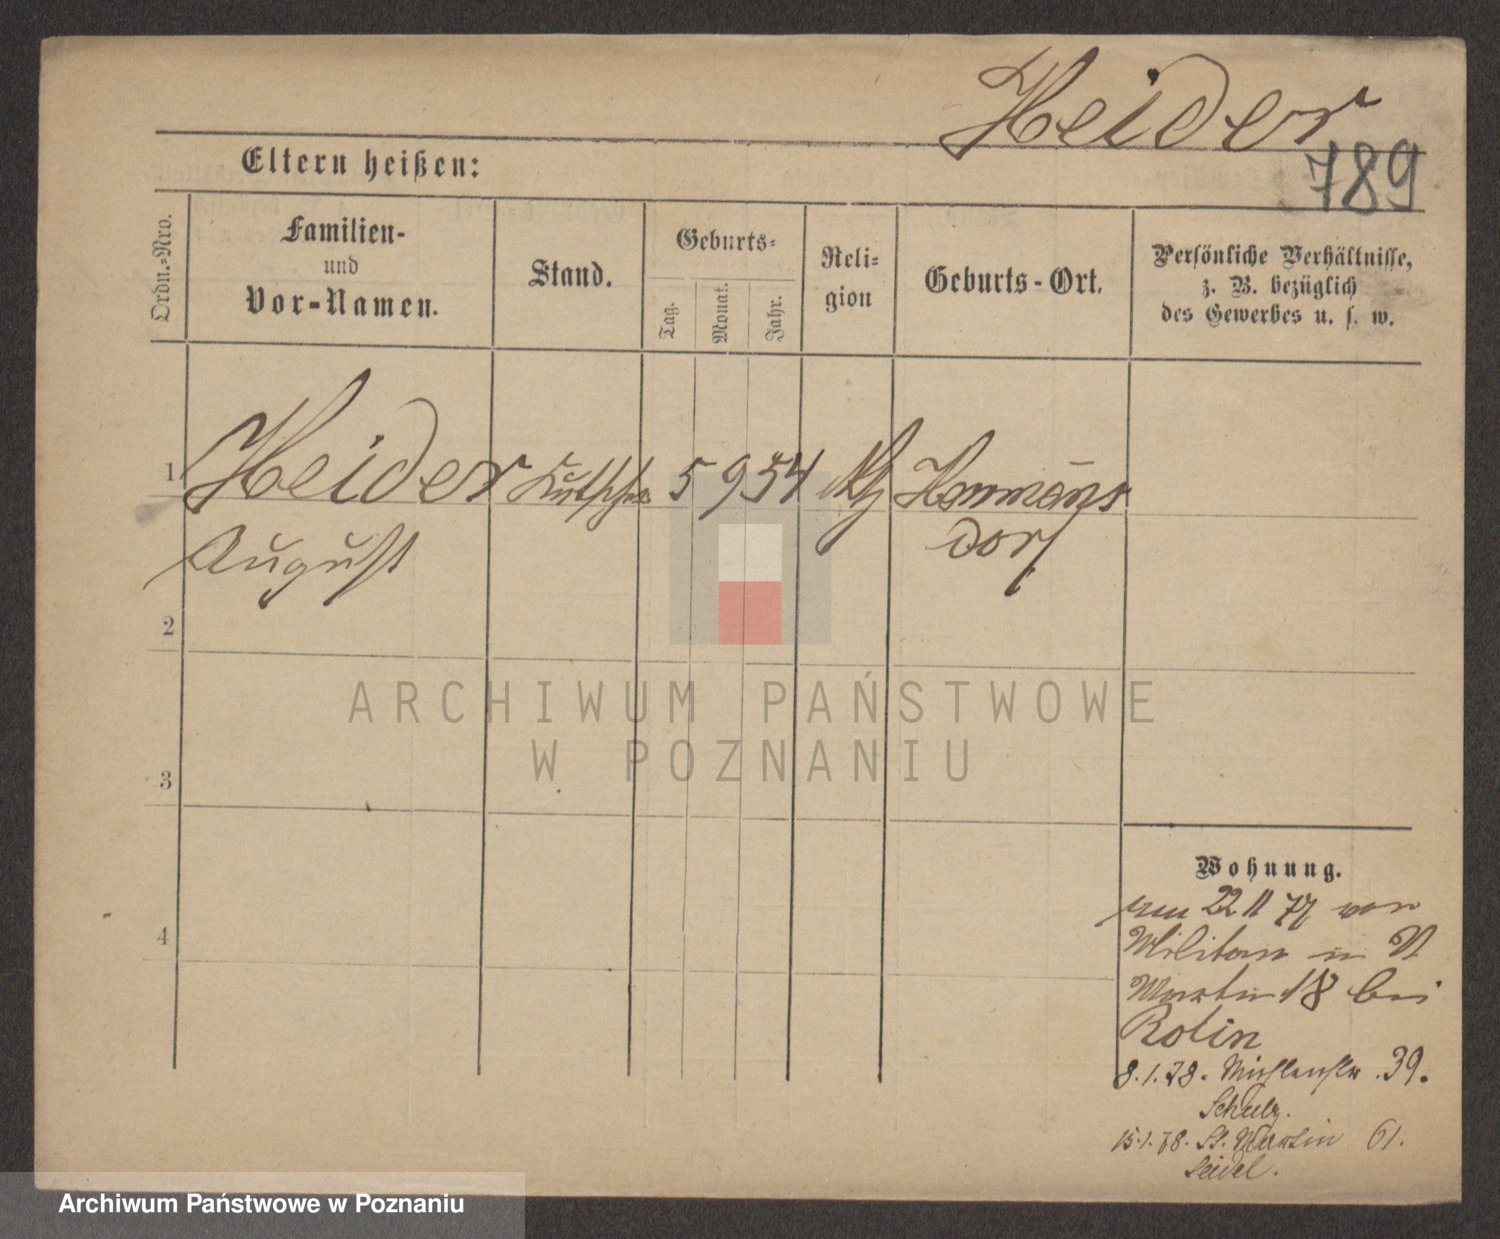 Heider
789
Eltern heißen:
Ordn.-Nro.
Familien-
und
Vor-Namen.
Stand.
Geburts-
Tag.
Monat.
Jahr.
Reli-
gion
Geburts-Ort.
Persönliche Verhältnisse,
z. B. bezüglich
des Gewerbes u. s. w.
1
Heider Kutscher 5 9 54
August
dorf
2
3
4
ARCHIWUM PAŃSTWOWE
W POZNANIU
Wohnung.
22 11 77 von
Militair in St
Martin 18 bei
Rolin
8.1.78. Mühlenstr. 39.
Schulz.
15.1.78. St. Martin 61.
Seidel.
Archiwum Państwowe w Poznaniu